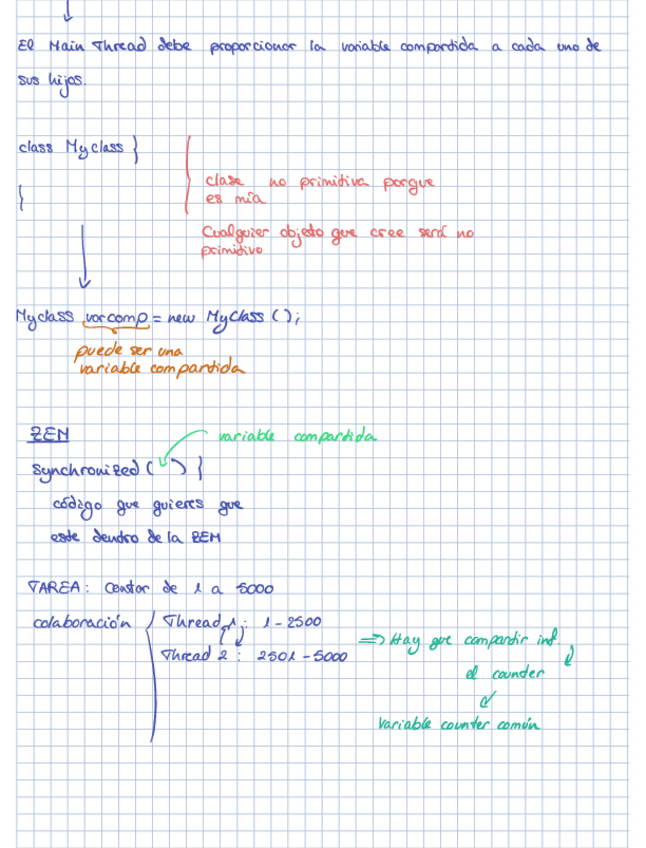 El Main Thread debe proporcionar la variable compartida a cada uno de
sus hijos.
class Myclass }
}
clase no primitiva porque
es mía
Cualquier objeto que cree será no
primitivo
Myclass varcomp = new MyClass ();
puede ser una
variable compartida
ZEM
variable compartida
Synchronized ( ) {
código que quieres que
este dentro de la ZEM
TAREA: Contar de 1 a 5000
colaboración
Thread 1: 1 - 2500
Thread 2 : 2501 - 5000
=> Hay que compartir inf.
el counter
Variable counter común